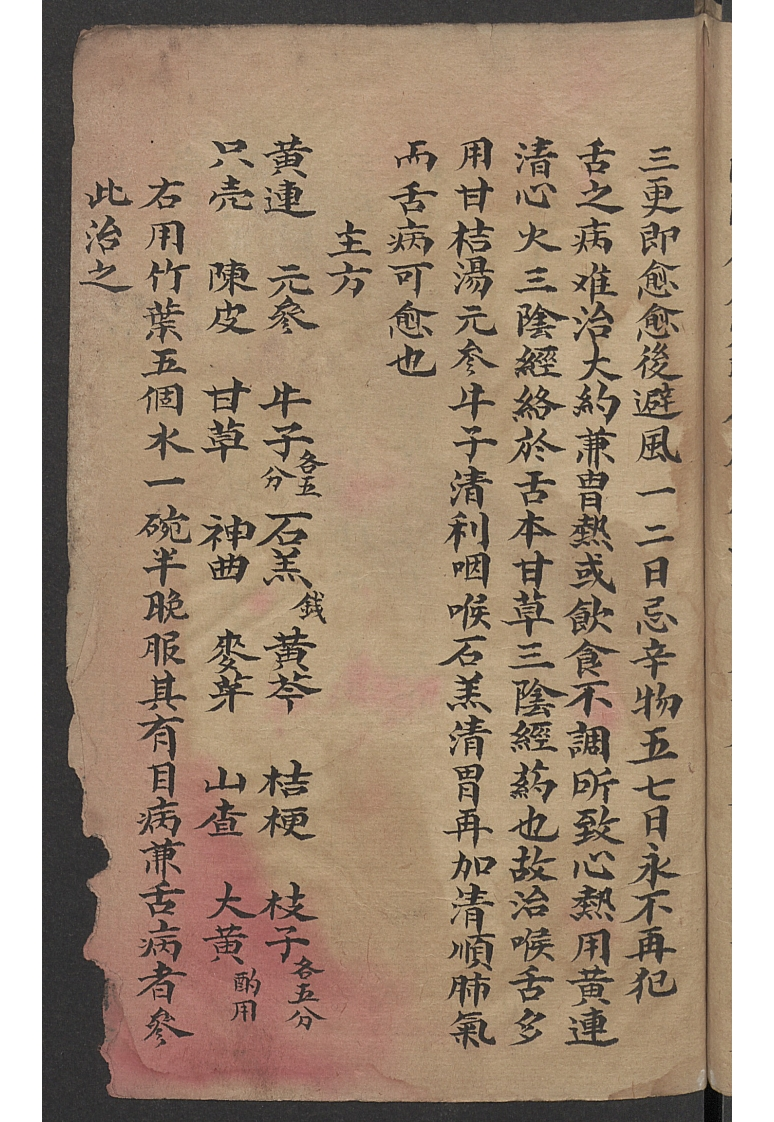 三更即愈愈後避風一二日忌辛物五七日永不再犯
舌之病难治大約兼胃熱或飲食不調所致心熱用黄連
清心火三陰經絡於舌本甘草三陰經葯也故治喉舌多
用甘桔湯元參牛子清利咽喉石羔清胃再加清順肺氣
而舌病可愈也
主方
黄連 元參 牛子各五分 石羔錢 黄芩 桔梗 枝子各五分
只壳 陳皮 甘草 神曲 麥芽 山查 大黄酌用
右用竹葉五個水一碗半晚服其有目病兼舌病者參
此治之